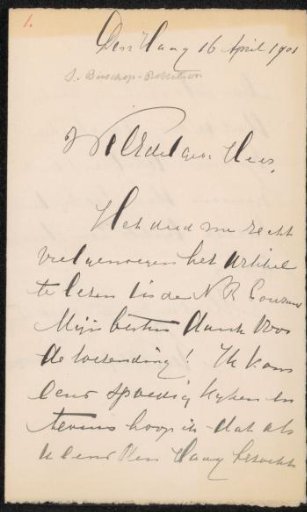 1.
Den Haag 16 April 1901
S. Bisschop-Robertson
WelEdelgeb. Heer,
Het deed me recht
veel genoegen het artikel
te lezen in de N R Courant
Mijn besten dank voor
de toezending! Ik kom
eens spoedig kijken en
tevens hoop ik dat als
u eens Den Haag bezoekt